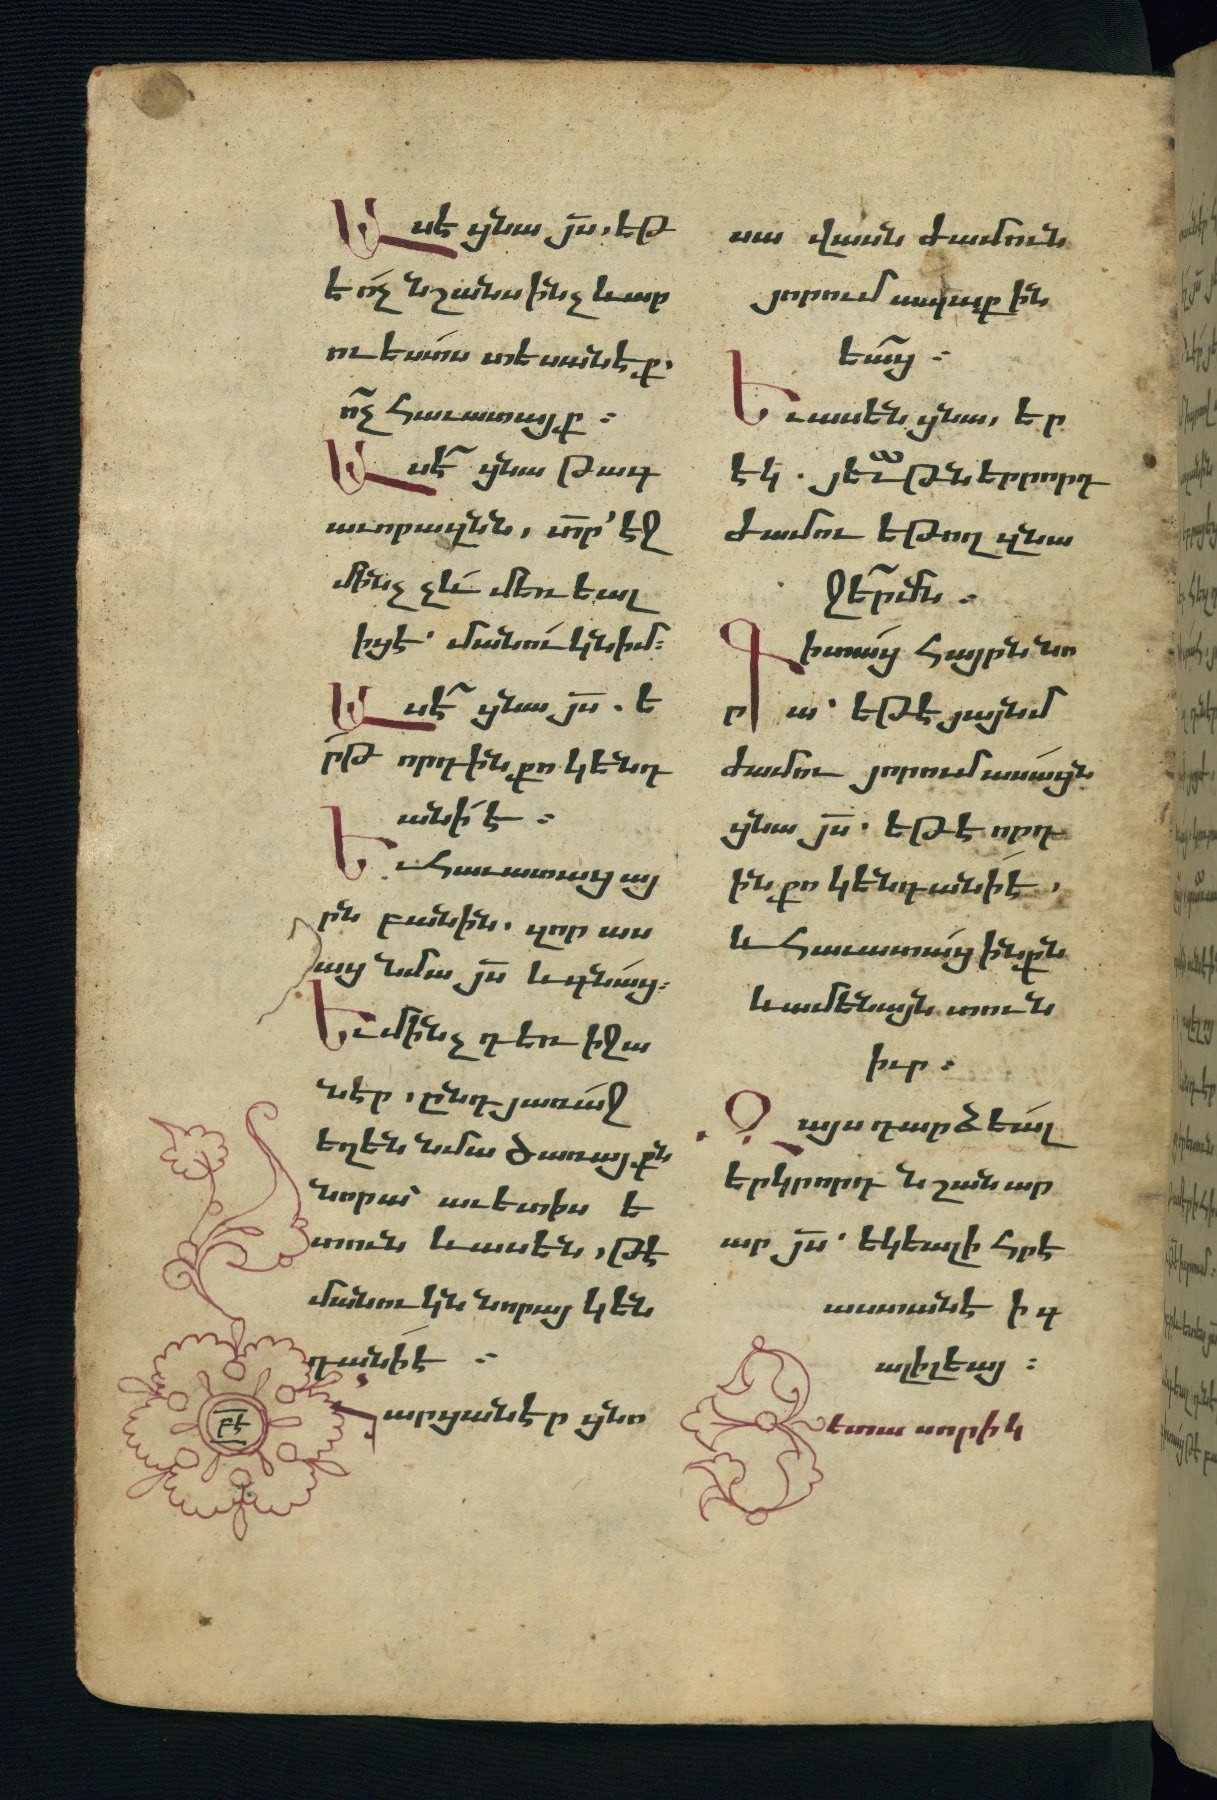 Ասէ ցնա յս, եթ
է ոչ նշանս ինչ և ար
ուեստս տեսանէք,
ոչ հաւատայք ։
Ասէ ցնա թագ
աւորազնն, տր՝ էջ
մինչ չև մեռեալ
իցէ՝ մանուկն իմ։
Ասէ ցնա յս . ե
րթ որդին քո կենդ
անի է ։
Եւ հաւատաց այ
րն բանին. զոր աս
աց նմա յս և գնաց։
Եւ մինչ դեռ իջա
նէր, ընդ յառաջ
եղեն նմա ծառայքն
նորա՝ աւետիս ե
տուն և ասեն, թէ
մանուկն նորայ կեն
դանի է ։
Հարցանէր ցնո
բէ
սա վասն ժամուն
յորում ապաքին
եաց ։
Եւ ասեն ցնա, եր
էկ . յեւթներորդ
ժամու եթող զնա
ջերմն ։
Գիտաց հայրն նո
ր ա՝ եթէ յայնմ
ժամու յորում ասացն
ցնա յս՝ եթէ որդ
ին քո կենդանի է,
և հաւատաց ինքն
և ամենայն տուն
իւր ։
Զայս դարձեալ
երկրորդ նշան ար
ար յս՝ եկեալ ի հրէ
աստանէ ի գ
ալիլեայ ։
Յետ այսորիկ